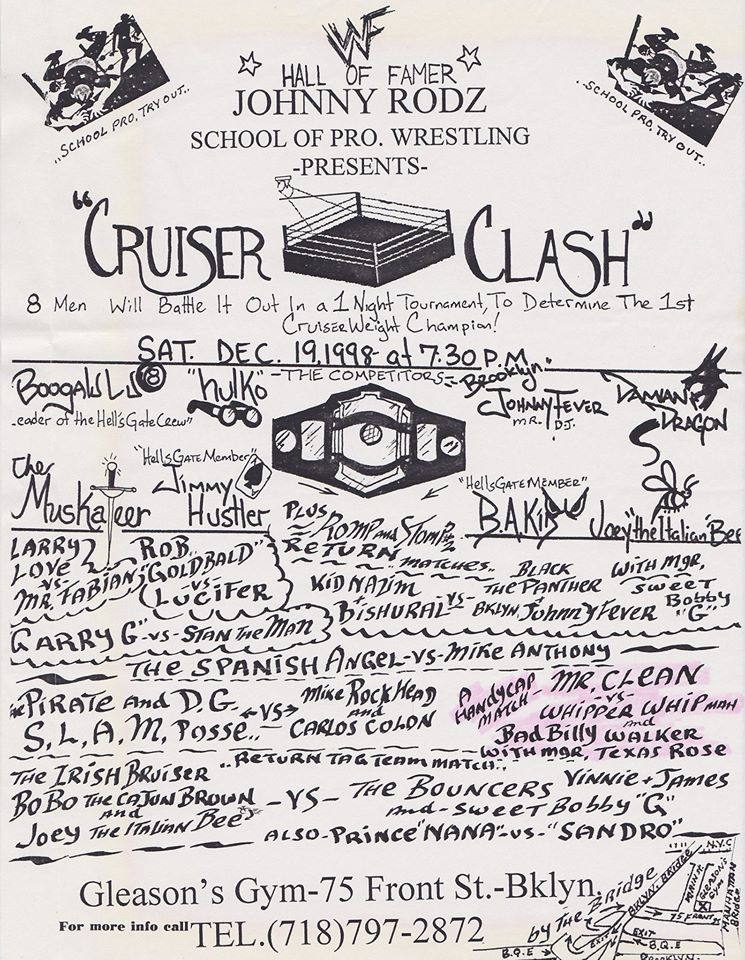 WF
HALL OF FAMER
JOHNNY RODZ
SCHOOL OF PRO. WRESTLING
-PRESENTS-
SCHOOL PRO, TRY OUT..
SCHOOL PRO, TRY OUT..
"CRUISER CLASH"
8 Men Will Battle It Out In a 1 Night Tournament, To Determine The 1st
CruiserWeight Champion!
SAT. DEC. 19, 1998- at 7:30 P.M.
-THE COMPETITORS-
BOOGALU 8
Leader of the Hell's Gate Crew"
"hulko"
Brooklyn
JOHNNY FEVER
MR. DJ.
DAMIAN
DRAGON
The
Muskateer
"Hell's GATE Member"
Jimmy
Hustler
"Hells GATE MEMBER"
B.A. Kid
Joey "the Italian" Bee
LARRY
LOVE
-VS-
MR. FABIAN
ROB
"GOLDBALD"
VS
LUCIFER
PLUS
ROMP and STOMP
RETURN
MATCHES..
KID NAZIM
+
BISHURAL -VS-
BLACK
THE PANTHER
BKLYN. JOHNNY FEVER
WITH MGR,
SWEET
Bobby
"G"
GARRY G -VS- STAN THE MAN
THE SPANISH ANGEL-VS-MIKE ANTHONY
the PIRATE and D.G.
S.L.A.M. POSSE..
<VS>
MIKE ROCK HEAD
and
CARLOS COLON
A
HANDYCAP
MATCH-
MR. CLEAN
-VS-
WHIPPER WHIP MAN
and
BAD BILLY WALKER
WITH MGR, TEXAS ROSE
..RETURN TAG TEAM MATCH..
THE IRISH BRUISER
BOBO THE CAJUN BROWN
and
JOEY THE ITALIAN BEE
-VS-
THE BOUNCERS VINNIE + JAMES
and-SWEET BOBBY "G"
ALSO-PRINCE "NANA"-VS-"SANDRO"
Gleason's Gym-75 Front St.-Bklyn.
For more info call TEL.(718)797-2872
by The Bridge
BKLYN. BRIDGE
N.Y.C
GLEASON'S
GYM
75 FRONT
MANHATTAN
BRIDGE
EXIT
EXIT
B.Q.E
B.Q.E
BROOKLYN.